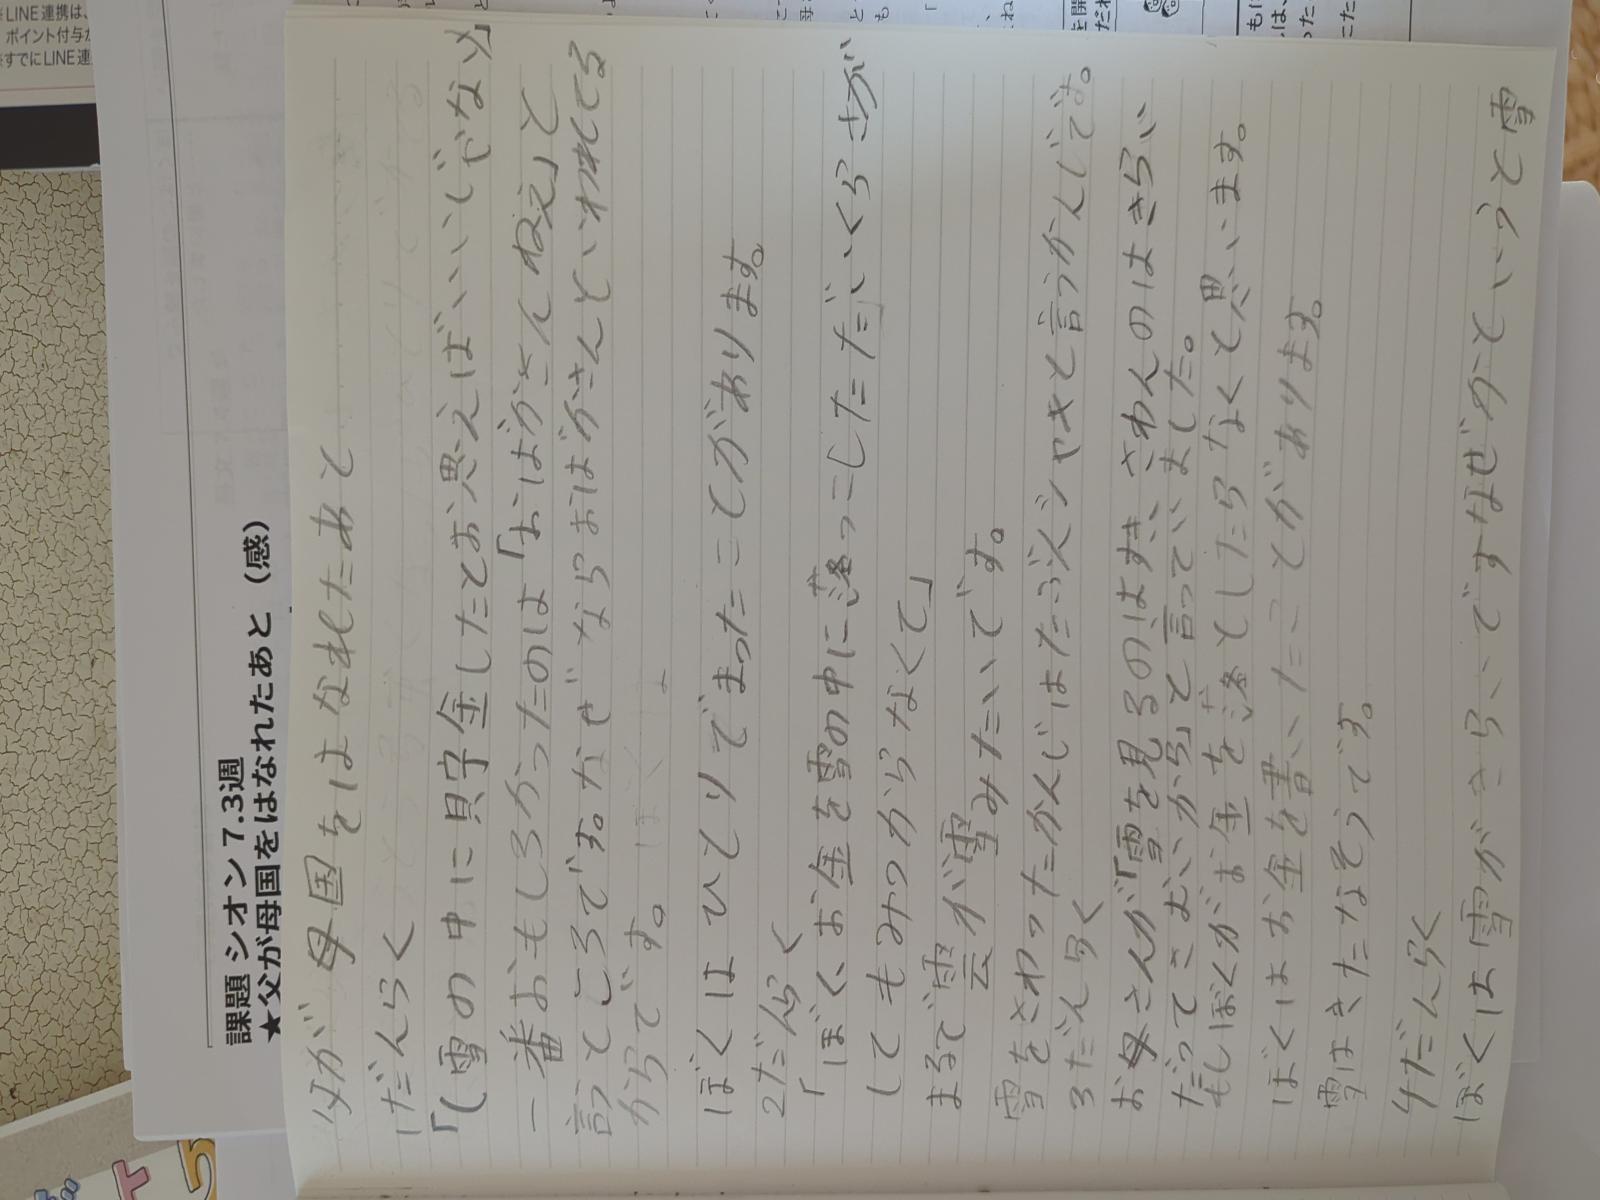 課題 シオン 7.3週
★父が母国をはなれたあと（感）
父が母国をはなれたあと
1だんらく
「(雪の中に貯金したとお思えばいいじゃない)」
一番おもしろかったのは「おばかさんねえ」と
言ってところです。なぜならおばかさんていわれてる
からです。
ぼくはひとりでまったことがあります。
2だんらく
「ぼく、お金を雪の中に落っこしただいくらさが
してもみつからなくて」
まるで雲が雪みたいです。
雪をさわったかんじはたぶんシャキと言うかんじです。
3だんらく
お母さんが「雪を見るのはすき、さわんのはきらい
だってさむいから」と言っていました。
もしぼくがお金を落としたらなくて思います。
ぼくはお金を書いたことがあります。
雪はきたなそうです。
4だんらく
ぼくは雪がきらいですなぜかというと雪
※LINE連携は、
ポイント付与が
※すでにLINE連